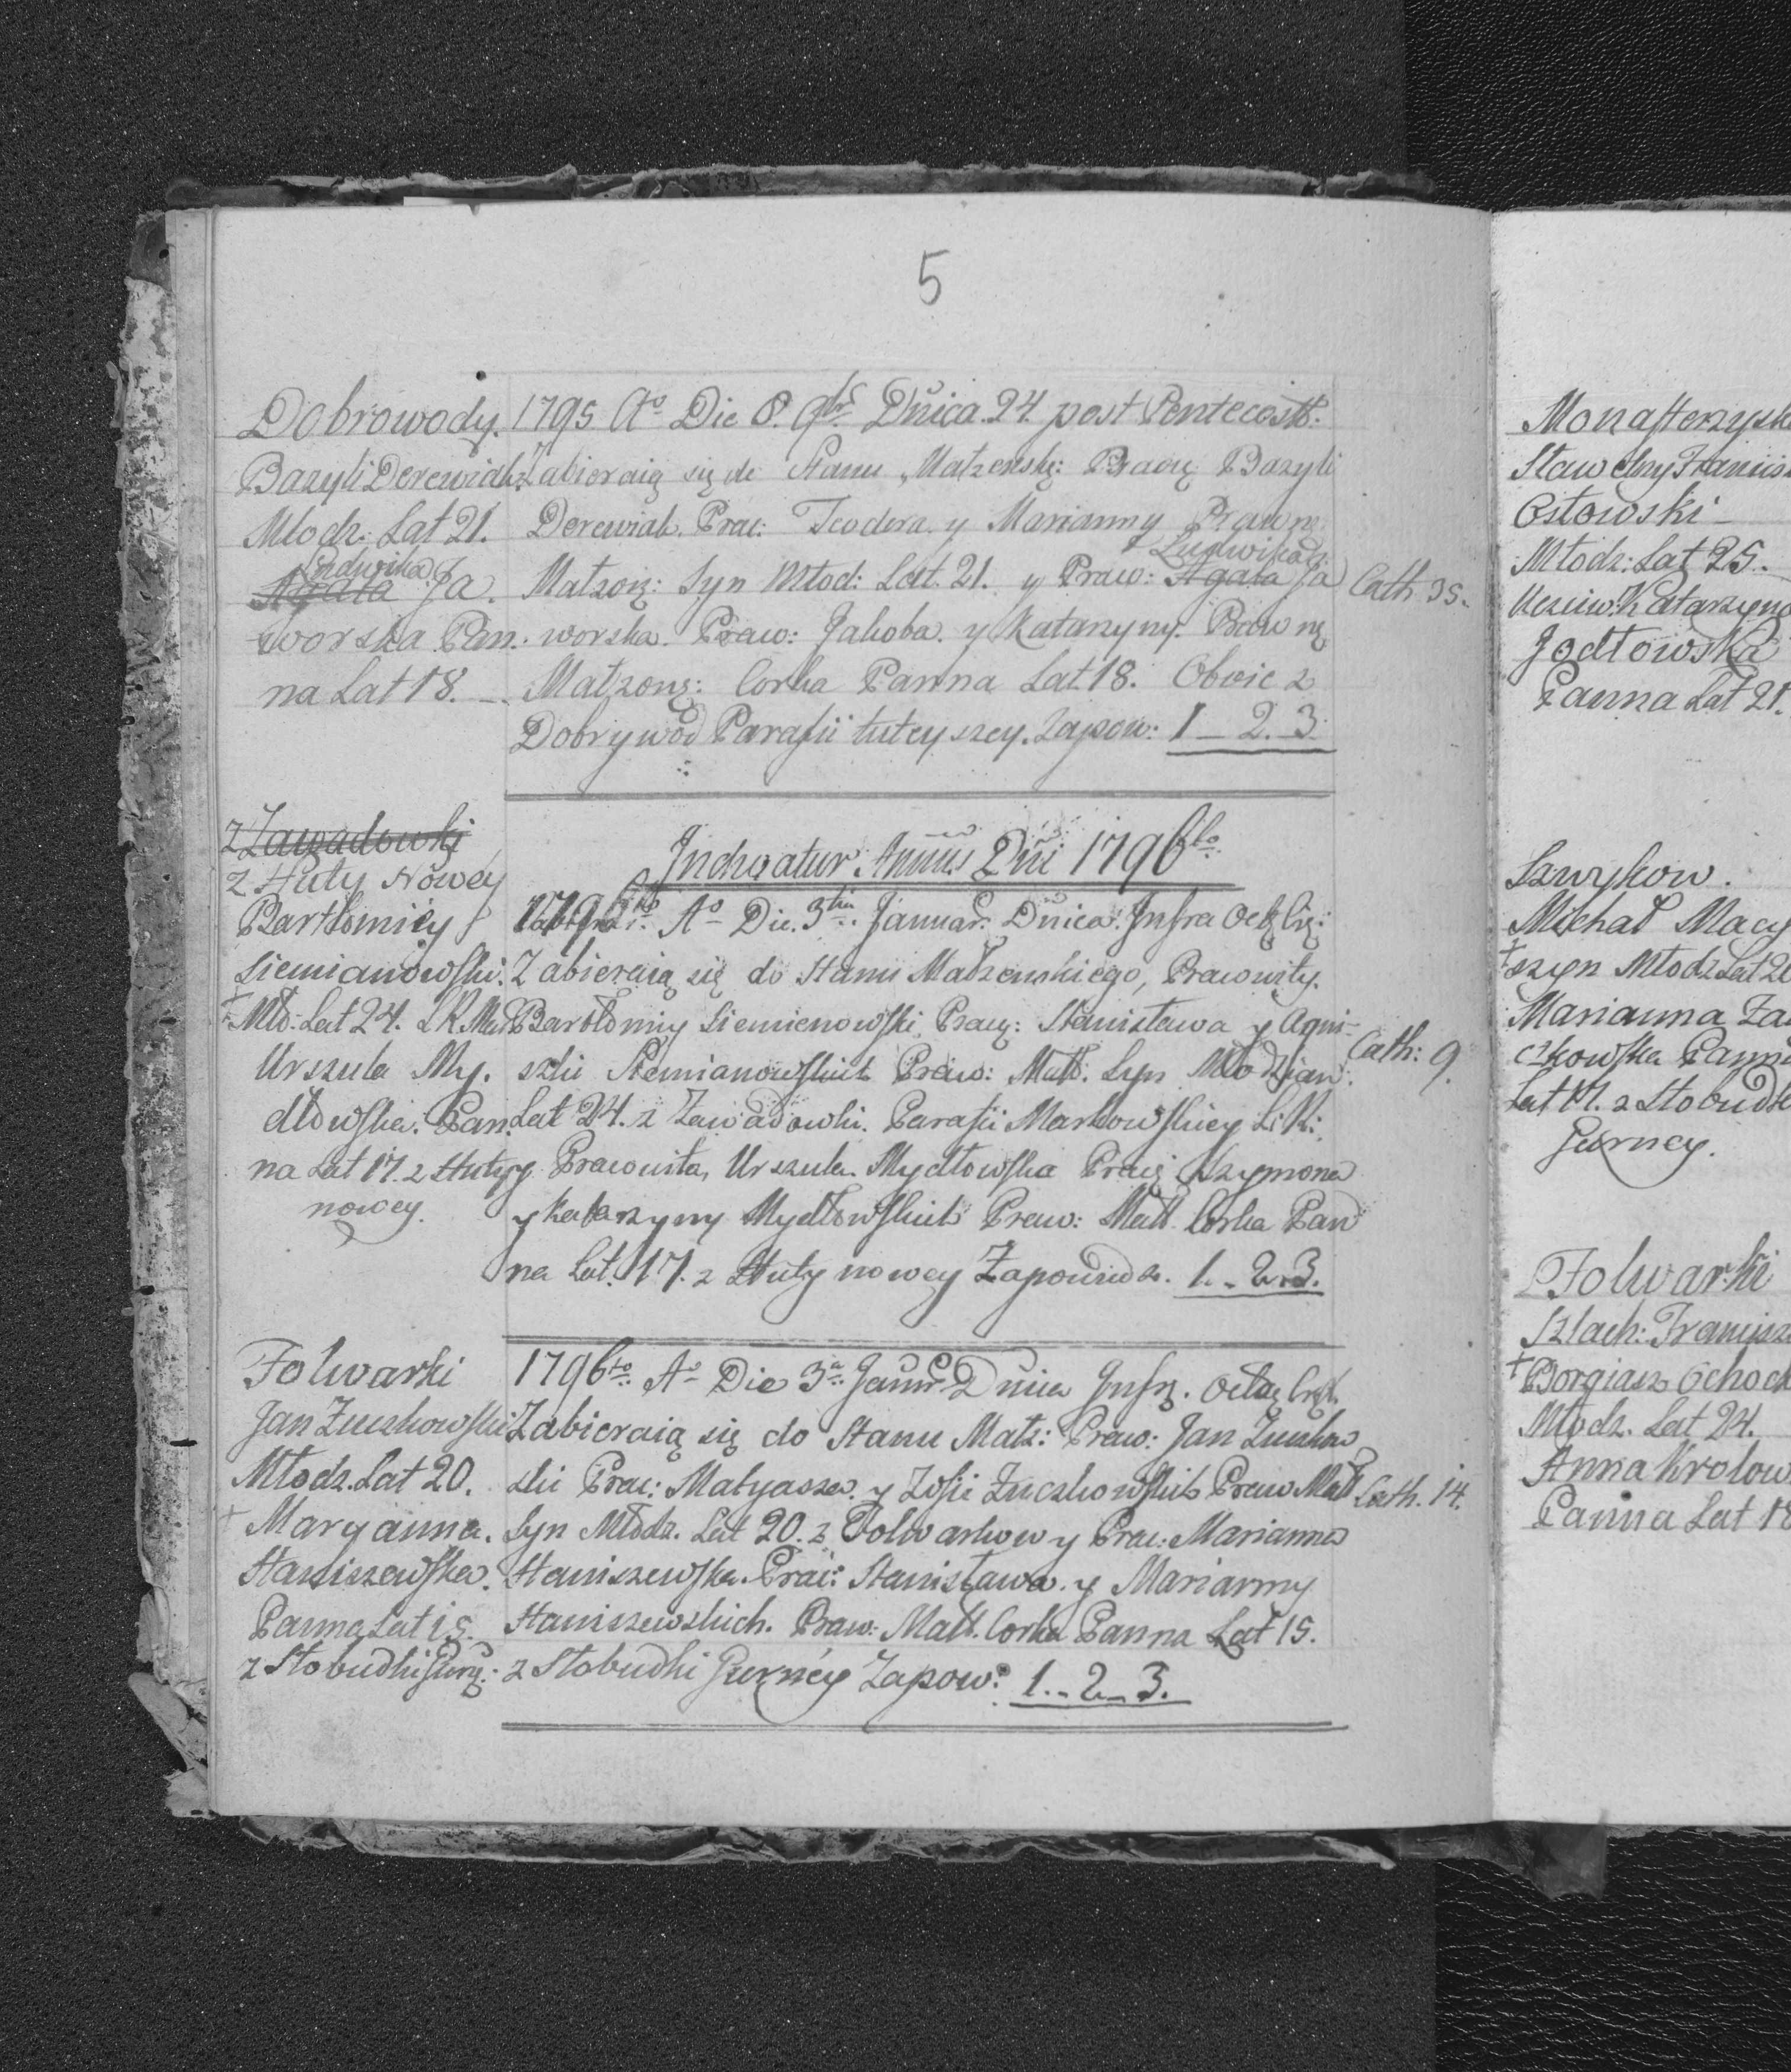 5
Dobrowody.
Bazyli Derewiak.
Młodz. Lat 21.
Ludwika
Agata Ja.
worska Pan.
na Lat 18.
1795 Aº Die 8. 9br Dnica. 24. post Pentecost:
Zabieraią się do Stanu Małzenskę: Pracę Bazyli
Derewiak. Prac: Teodora. y Marianny Prawnę
Ludwika
Małzonę: Syn Młod: Lat. 21. y Praw: Agata Ja
worska. Praw: Jakoba. y Katarzyny. Prawnę
Małzonę: Corka Panna Lat. 18. Oboie z
Dobrywod Parafii tuteyszey. Zapow: 1 - 2. 3.
Cath 35.
z Zawadowki
z Huty Nowey
Bartłomiey
Siemianowski.
Mło: Lat 24.
Urszula My.
dłowska. Pan.
na Lat 17. z Huty
nowey.
Inchoatur Annus Dni 1796to
1796to Aº Die. 3tia Januar. Dnica: Infra Oct
Zabieraią się do Stanu Małzenskiego, Prawowity.
Bartłomiy Siemienowski Pracę: Stanisława y Agni-
szki Siemianowskich Praw: Małż. Syn Młodzian:
Lat 24. z Zawadowki. Parafii Markowskiey L: R:
y Prawowita, Urszula Mydłowska Pracę Szymona
y Katarzyny Mydłowskich Praw: Małż Corka Pan
na Lat. 17. z Huty nowey Zapowiedz. 1. - 2. 3.
Cath: 9.
Folwarki
Jan Zuczkowski
Młodz. Lat 20.
Maryanna.
Staniszewska.
Panna Lat 15.
z Stobudki Gurnę:
1796to Aº Die 3a Januar Dnica Infr. Octa
Zabieraią się do Stanu Małz: Praw: Jan Zuczkow
ski Prac: Matyasza y Zofii Zuczkowskich Praw Małż
Syn Młodz. Lat 20. z Folwarkow y Prac: Marianna
Staniszewska. Prac: Stanisława. y Marianny
Staniszewskich. Praw: Małż. Corka Panna Lat 15.
z Stobudki Gurney Zapow: 1. - 2. - 3.
Cath. 14.
Monasterzysk
Ostowski
Młodz: Lat 25.
Uczciw: Katarzyna
Jodłowska
Panna Lat 21.
Szwykow.
Michał Macy
szyn Młodz Lat 2
Marianna Za
czkowska Panna
Lat 17. z Stobudk
Gurney.
Folwarki
Szlach: Francisz
Borgiasz Ochock
Młodz. Lat 24.
Anna Krolow
Panna Lat 18